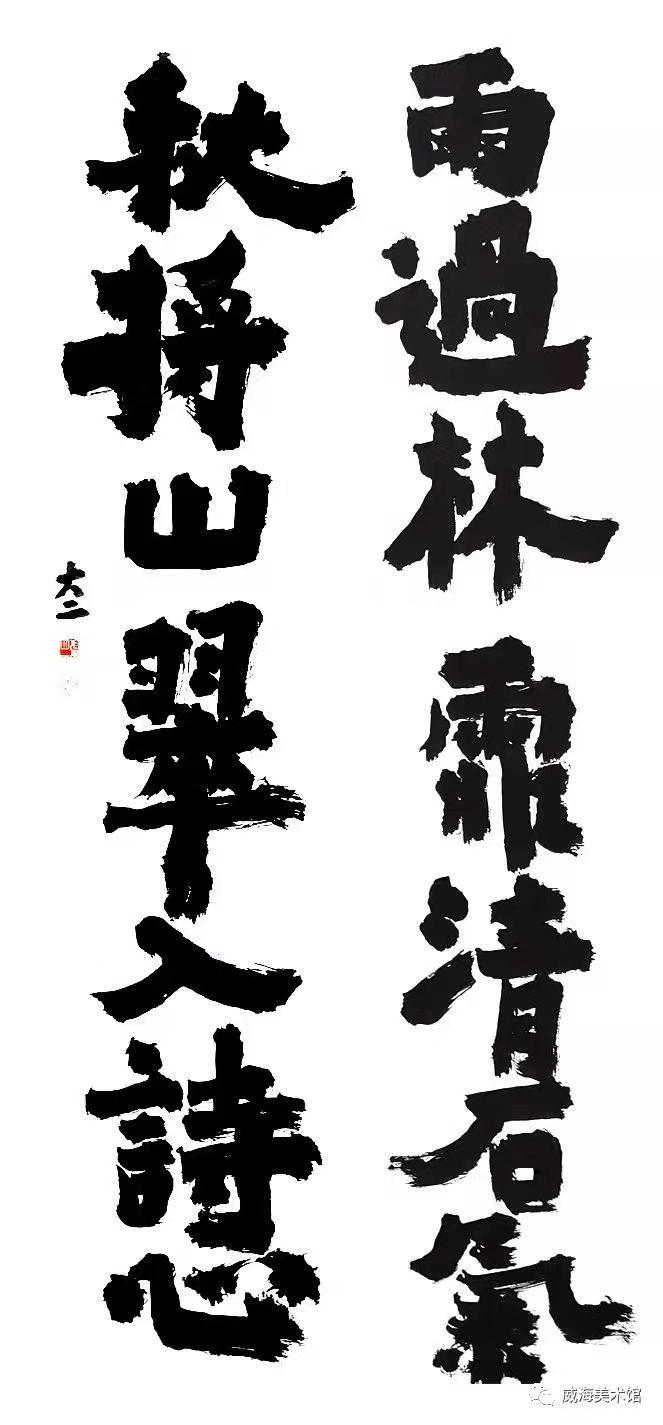 雨過林霏清石氣
秋將山翠入詩心
大二
威海美术馆